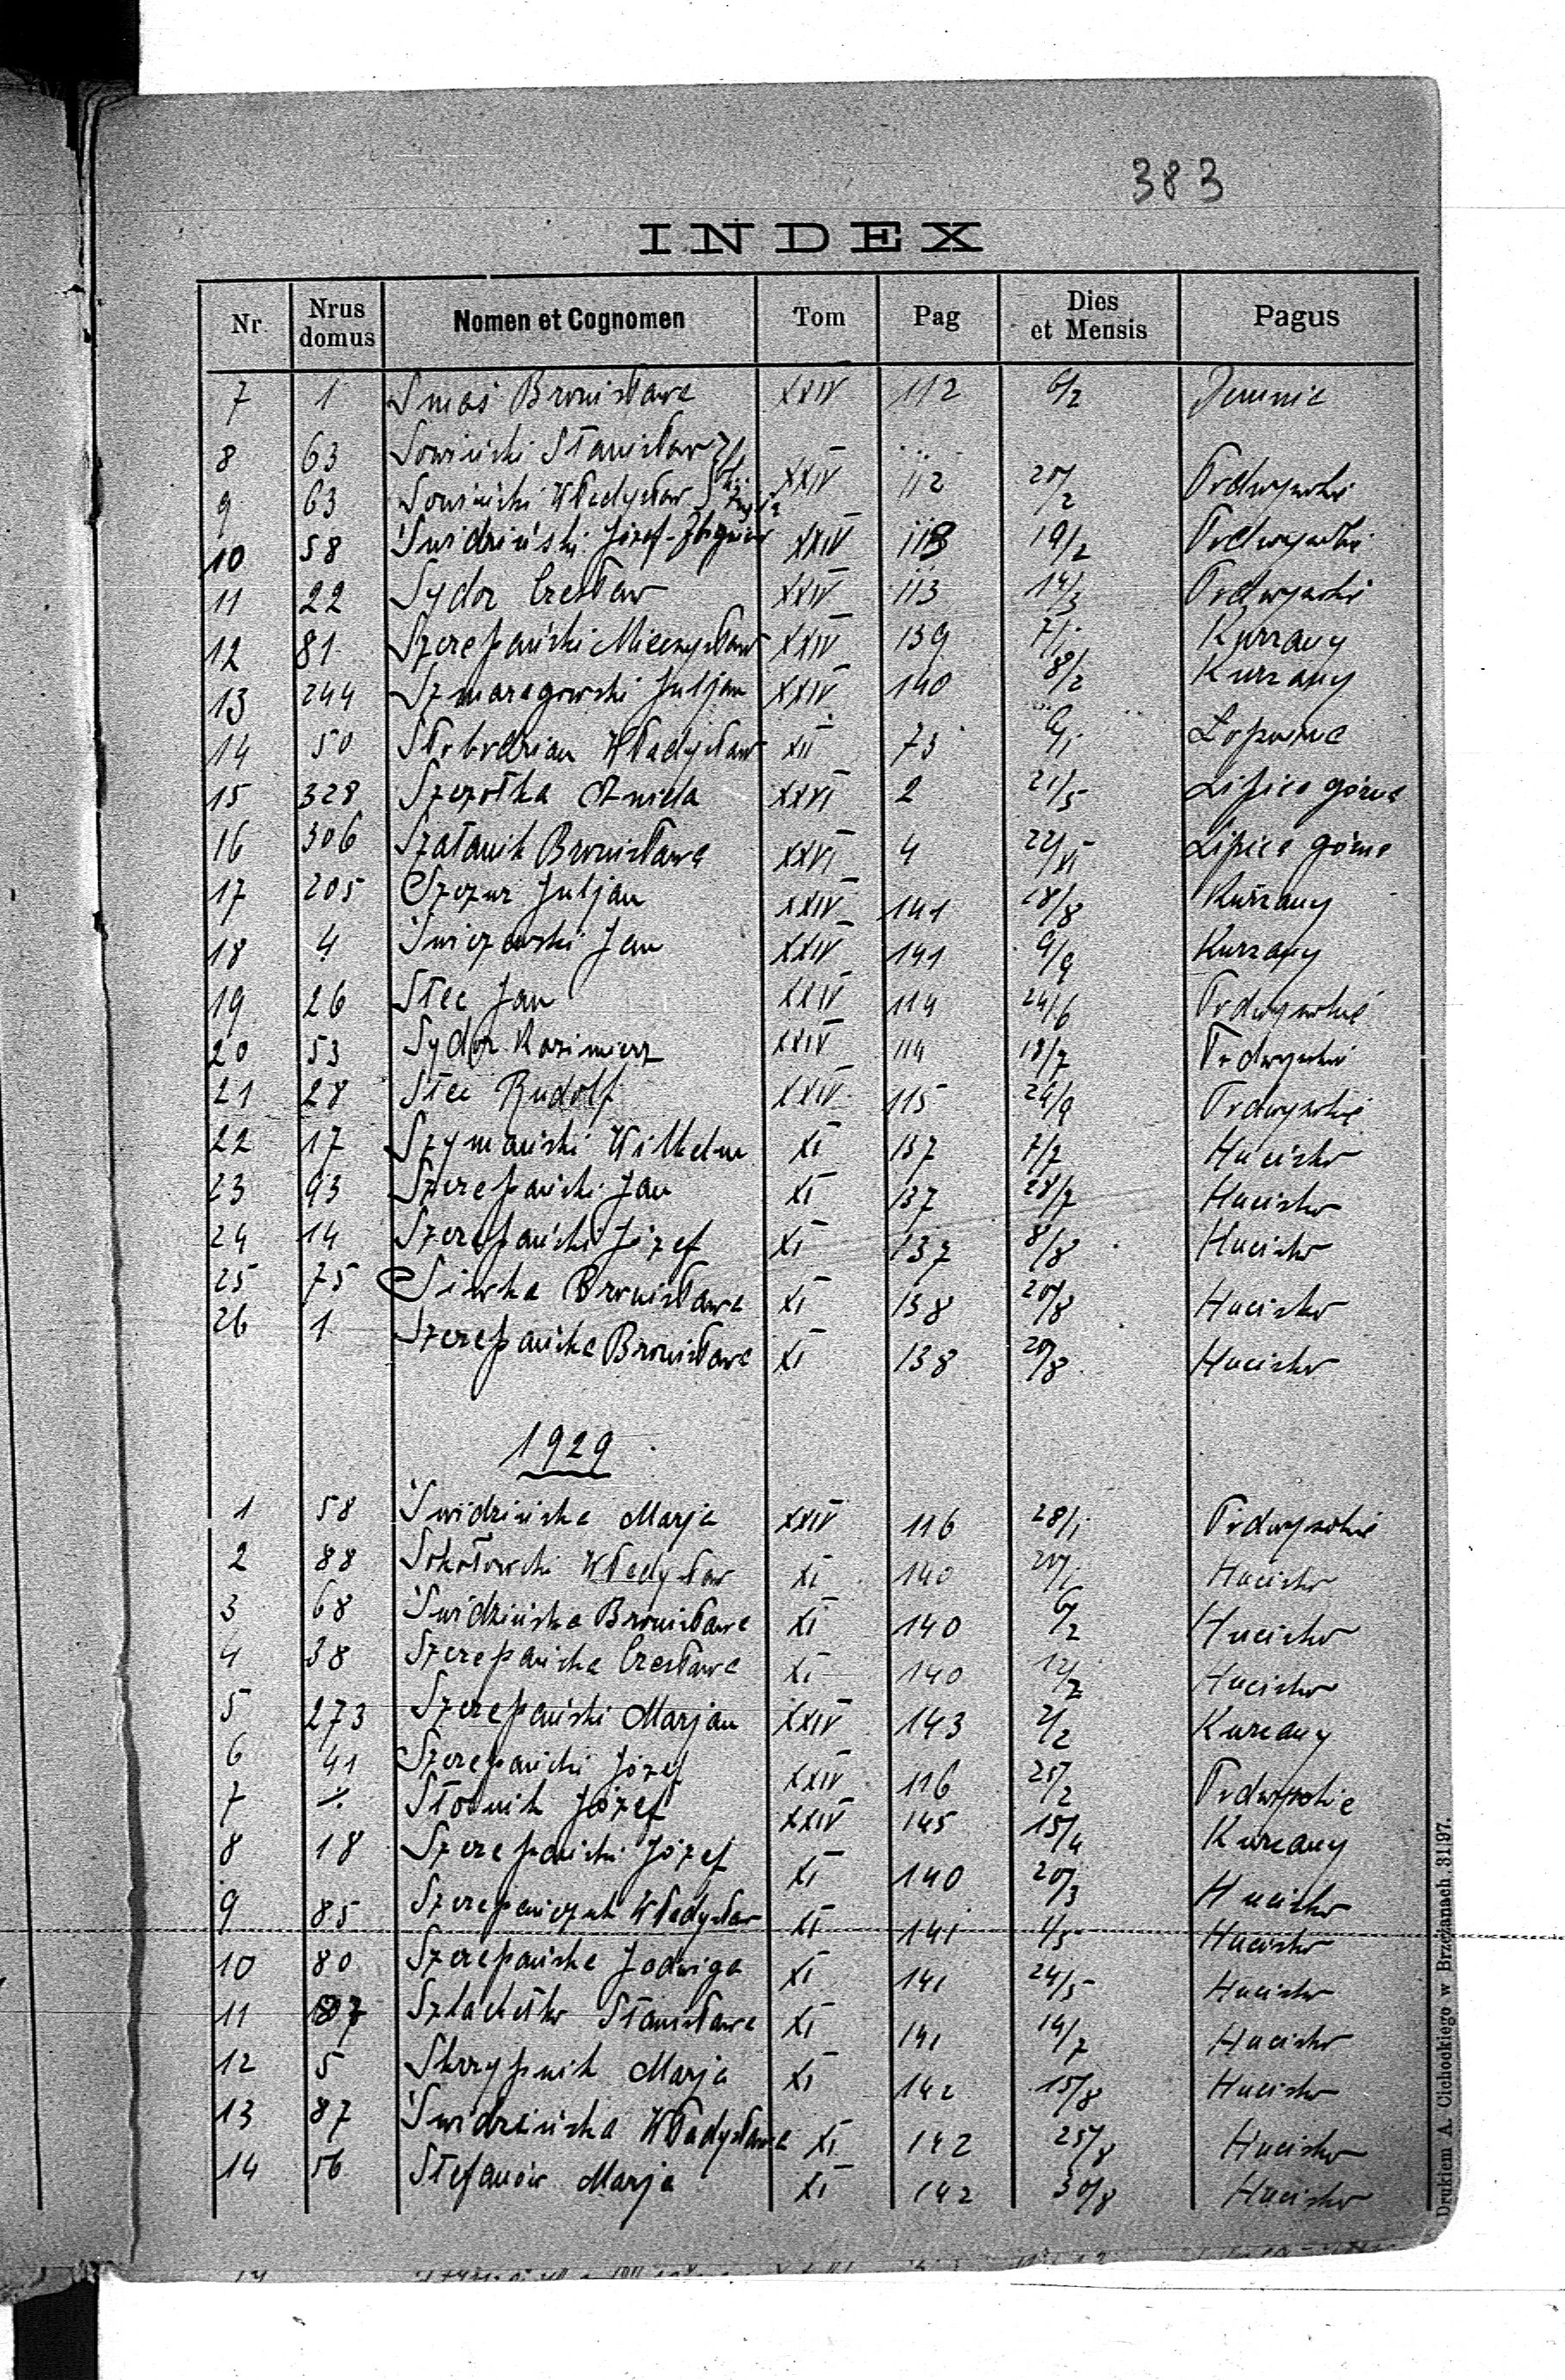 383
INDEX
Nr Nrus domus Nomen et Cognomen Tom Pag Dies et Mensis Pagus
7 1 Smaś Bronisława XXIV 112 6/2
8 63 Sowiński Stanisław
9 63 Sowiński Władysław XXIV 112 20/2 Podwysokie
10 58 Świdziński Józef-Zbigniew XXIV 113 19/2 Podwysokie
11 22 Sydor Czesław XXIV 113 14/3 Podwysokie
12 81 Szczepański Mieczysław XXIV 139 7/1 Kurzany
13 244 Szmaragowski Juljan XXIV 140 8/2 Kurzany
14 50 Słobodzian Władysław XII 73 6/1 Łopuszna
15 328 Szczotka Aniela XXVI 2 21/5 Lipica górna
16 306 Szatanik Bronisława XXVI 4 22/XI Lipica górna
17 205 Szczur Juljan XXIV 141 28/8 Kurzany
18 4 Świczewski Jan XXIV 141 9/9 Kurzany
19 26 Stec Jan XXIV 114 24/6 Podwysokie
20 53 Sydor Kazimierz XXIV 114 18/7 Podwysokie
21 28 Stec Rudolf XXIV 115 24/9 Podwysokie
22 17 Szymański Wilhelm XI 137 7/7 Hucisko
23 93 Szczepański Jan XI 137 28/7 Hucisko
24 14 Szczepański Józef XI 137 8/8 Hucisko
25 75 Siwka Bronisława XI 138 20/8 Hucisko
26 1 Szczepańska Bronisława XI 138 20/8 Hucisko
1929
1 58 Świdzińska Marja XXIV 116 28/1 Podwysokie
2 88 Sokołowski Władysław XI 140 20/1 Hucisko
3 68 Świdzińska Bronisława XI 140 6/2 Hucisko
4 38 Szczepańska Czesława XI 140 12/2 Hucisko
5 273 Szczepański Marjan XXIV 143 2/2 Kurzany
6 41 Szczepański Józef XXIV 116 25/2 Podwysokie
7 Słotnik Józef XXIV 145 15/4 Kurzany
8 18 Szczepański Józef XI 140 20/3 Hucisko
9 85 Szczepańczuk Władysław XI 141 4/5 Hucisko
10 80 Szczepańska Jadwiga XI 141 24/5 Hucisko
11 87 Szlachetko Stanisława XI 141 14/7 Hucisko
12 5 Skrzypnik Marja XI 142 15/8 Hucisko
13 87 Świdzińska Władysława XI 142 25/8 Hucisko
14 56 Stefanów Marja XI 142 30/8 Hucisko
Drukiem A. Cichockiego w Brzeżanach. 31|97.